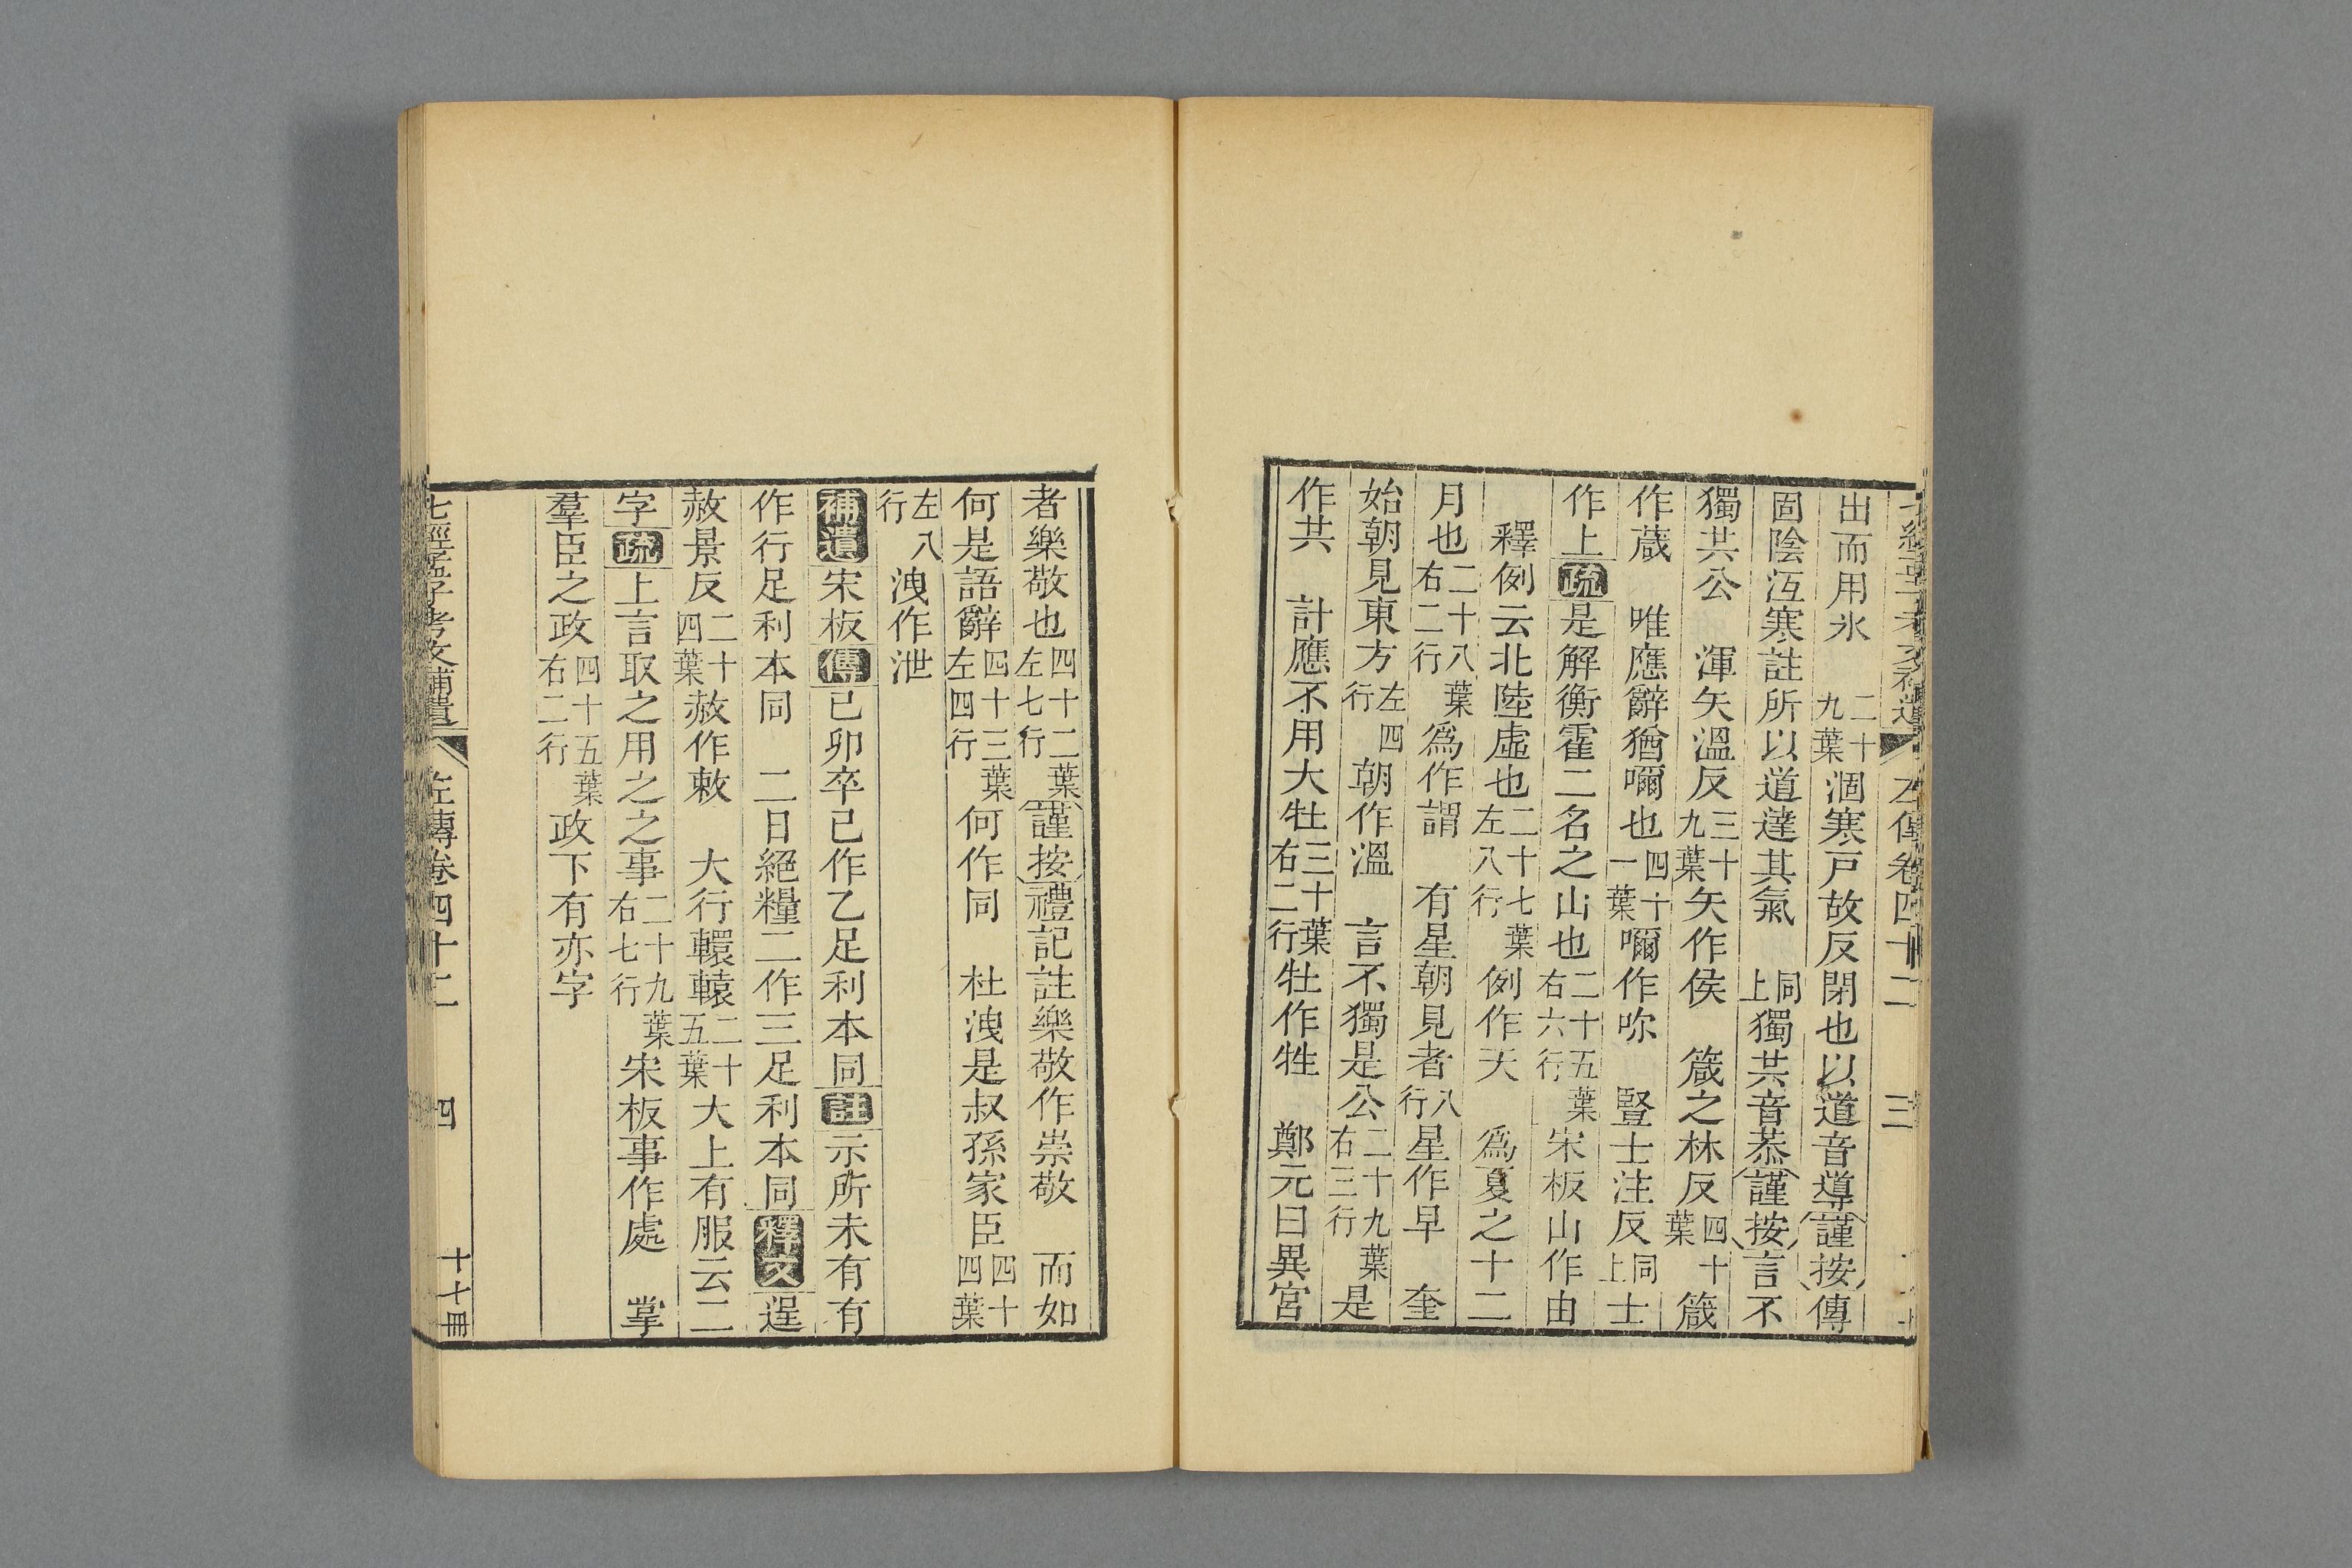 出而用氷二十九葉涸寒戸故反閉也以道音導謹按傳
固陰冱寒註所以道達其氣同上獨共音恭謹按言不
獨共公　渾矢溫反三十九葉矢作侯　箴之林反四十葉箴
作葴　唯應辭猶嚸也四十一葉嚸作咏　豎士注反同上士
作上疏是解衡霍二名之山也二十五葉右六行宋板山作由
釋例云北陸虛也二十七葉左八行例作天　爲夏之十二
月也二十八葉右二行爲作謂　有星朝見者八行星作早　奎
始朝見東方左四行朝作溫　言不獨是公二十九葉右三行是
作共　計應不用大牡三十葉右二行牡作牲　鄭元曰異宮
者樂敬也四十二葉左七行謹按禮記註樂敬作崇敬　而如
何是語辭四十三葉左四行何作同　杜洩是叔孫家臣四十四葉
左八行洩作泄
補遺宋板傳已卯卒已作乙足利本同註示所未有有
作行足利本同　二日絕糧二作三足利本同釋文逞
赦景反二十四葉赦作敕　大行轘轅二十五葉大上有服云二
字疏上言取之用之之事二十九葉右七行宋板事作處　掌
羣臣之政四十五葉右二行政下有亦字
七經孟子考文補遺　左傳卷四十二　四　十七冊